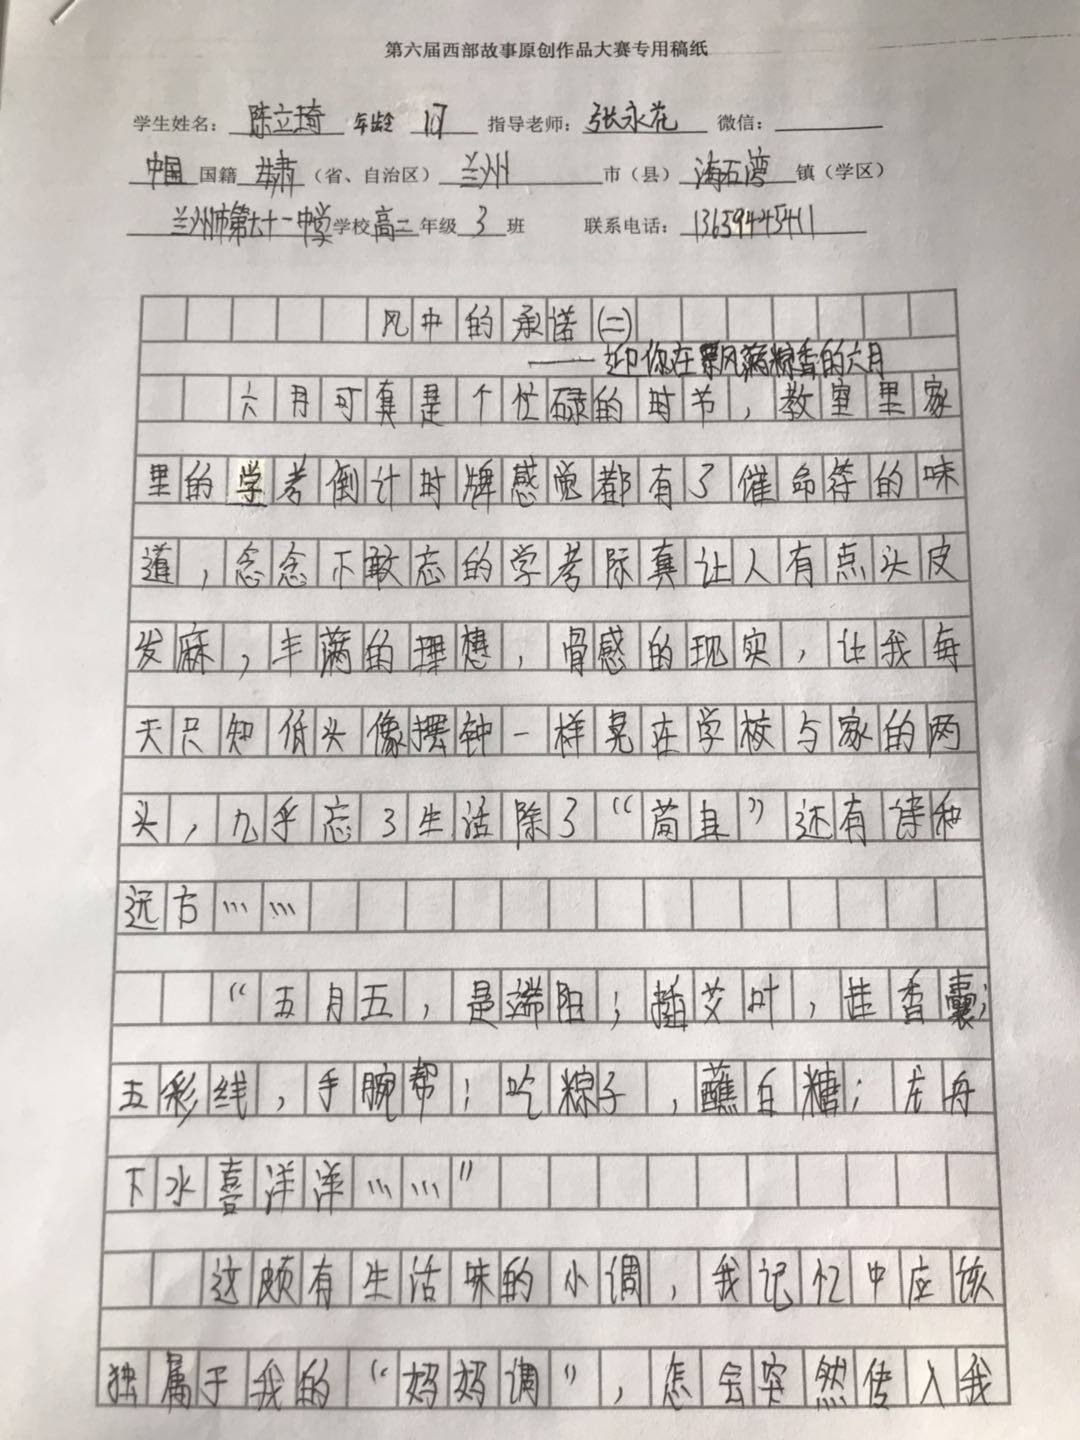 第六届西部故事原创作品大赛专用稿纸
学生姓名：陈立琦 年龄 17 指导老师：张永花 微信：
中国国籍 甘肃（省、自治区）兰州市（县）海石湾镇（学区）
兰州市第六十一中学学校高二年级3班 联系电话：13659445411
风中的承诺(二)
——迎你在風满粽香的六月
六月可真是个忙碌的时节，教室里家
里的学考倒计时牌感觉都有了催命符的味
道，念念不敢忘的学考际真让人有点头皮
发麻，丰满的理想，骨感的现实，让我每
天只知低头像摆钟一样晃在学校与家的两
头，九乎忘了生活除了“苟且”还有诗和
远方……
“五月五，是端阳；插艾叶，挂香囊；
五彩线，手腕帮；吃粽子，蘸白糖；龙舟
下水喜洋洋……”
这颇有生活味的小调，我记忆中应该
独属于我的“妈妈调”，怎会突然传入我